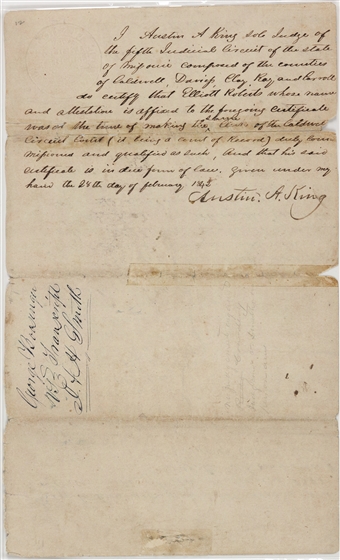 I Austin A King sole Judge of
the fifth Judicial Circuit of the state
of Missouri composed of the counties
of Caldwell Daviess Clay Ray and Carroll
do certify that Elliott Roberts whose name
and attestation is affixed to the foregoing certificate
was at the time of making the same Clerk of the Caldwell
Circuit Court (it being a court of Record) duly Com
missioned and qualified as such, And that his said
certificate is in due form of law. Given under my
hand the 24th day of february 1842
Austin. A. King
George
vs Transcript
J Smith